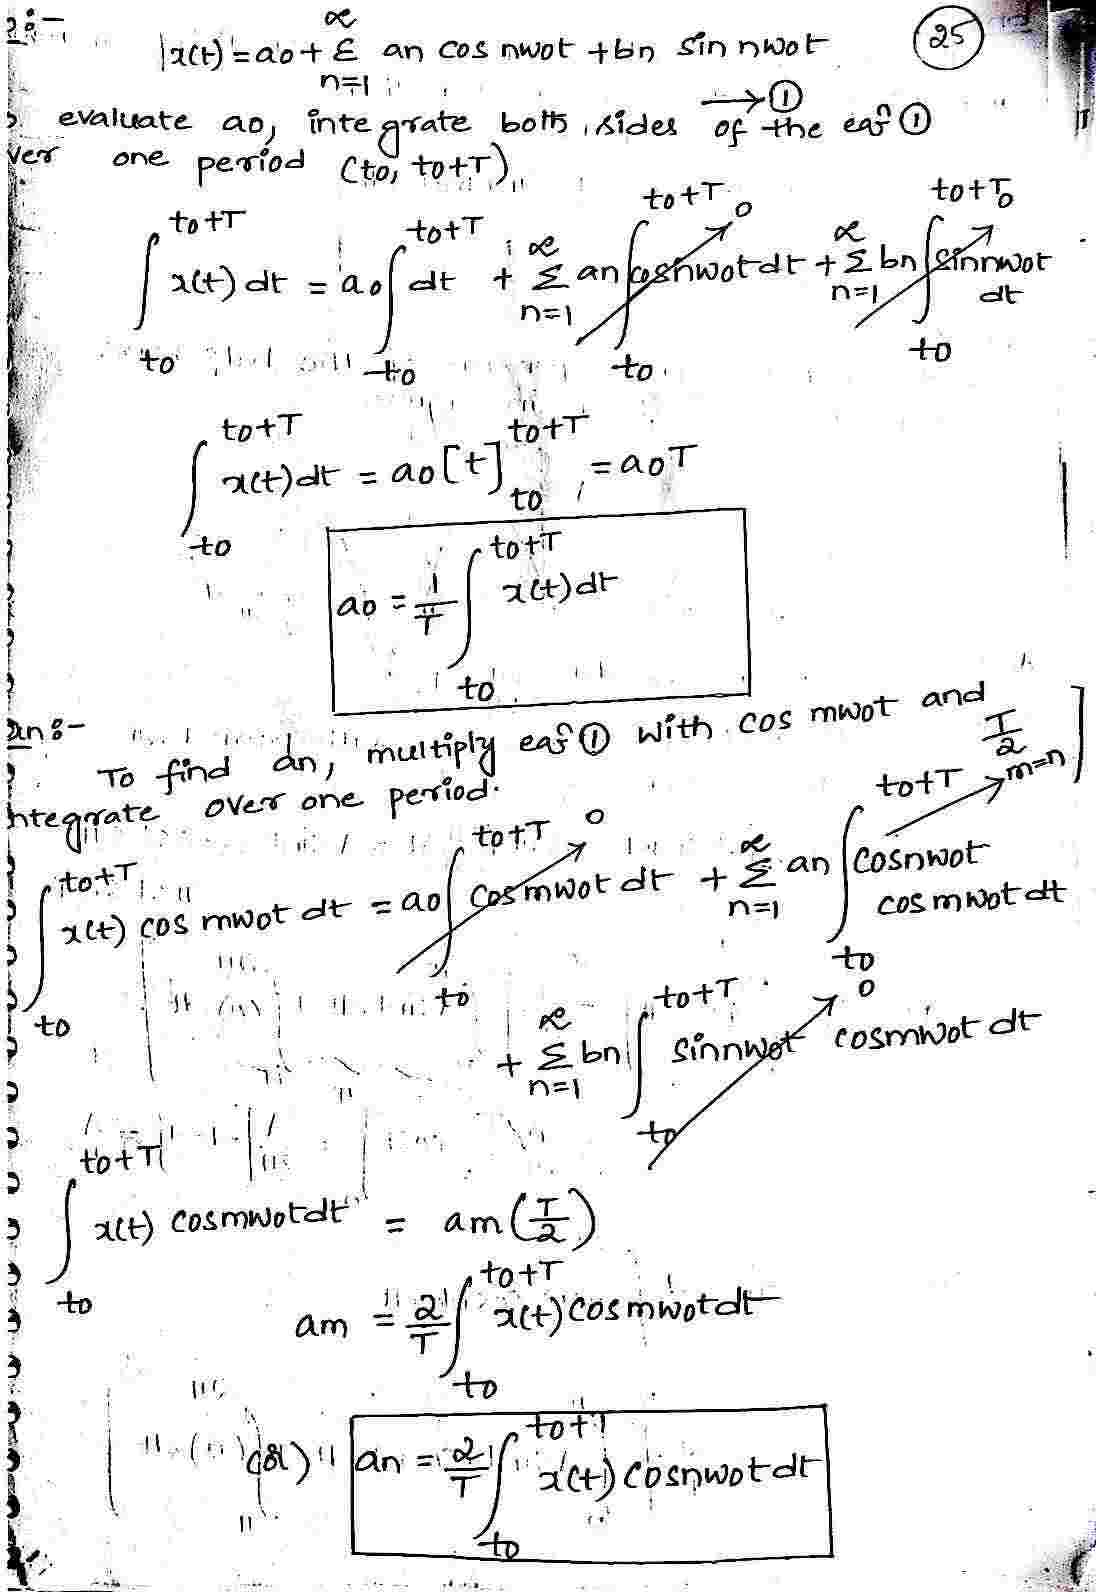 25
x(t) = a0 + Σ an cos nw0t + bn sin nw0t
n=1
∞
→ ①
evaluate a0, integrate both sides of the eqn ①
ver one period (t0, t0+T)
∫_{t0}^{t0+T} x(t) dt = a0 ∫_{t0}^{t0+T} dt + Σ_{n=1}^{∞} an ∫_{t0}^{t0+T} cosnw0t dt → 0 + Σ_{n=1}^{∞} bn ∫_{t0}^{t0+T} sinnw0t dt → 0
∫_{t0}^{t0+T} x(t) dt = a0 [t]_{t0}^{t0+T} = a0T
a0 = 1/T ∫_{t0}^{t0+T} x(t) dt
an :-
To find an, multiply eqn ① with cos mw0t and
ntegrate over one period.
∫_{t0}^{t0+T} x(t) cos mw0t dt = a0 ∫_{t0}^{t0+T} cosmw0t dt → 0 + Σ_{n=1}^{∞} an ∫_{t0}^{t0+T} cosnw0t cosmw0t dt → T/2 m=n ]
+ Σ_{n=1}^{∞} bn ∫_{t0}^{t0+T} sinnw0t cosmw0t dt → 0
∫_{t0}^{t0+T} x(t) cosmw0t dt = am (T/2)
am = 2/T ∫_{t0}^{t0+T} x(t) cosmw0t dt
(or) an = 2/T ∫_{t0}^{t0+T} x(t) cosnw0t dt